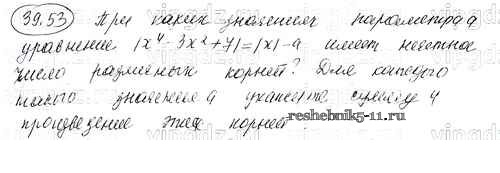 39.53) При каких значениях параметра а
уравнение |x⁴-3x²+7|=|x|-a имеет нечетное
число различных корней? Для каждого
такого значения а укажите сумму и
произведение этих корней.
reshebnik5-11.ru